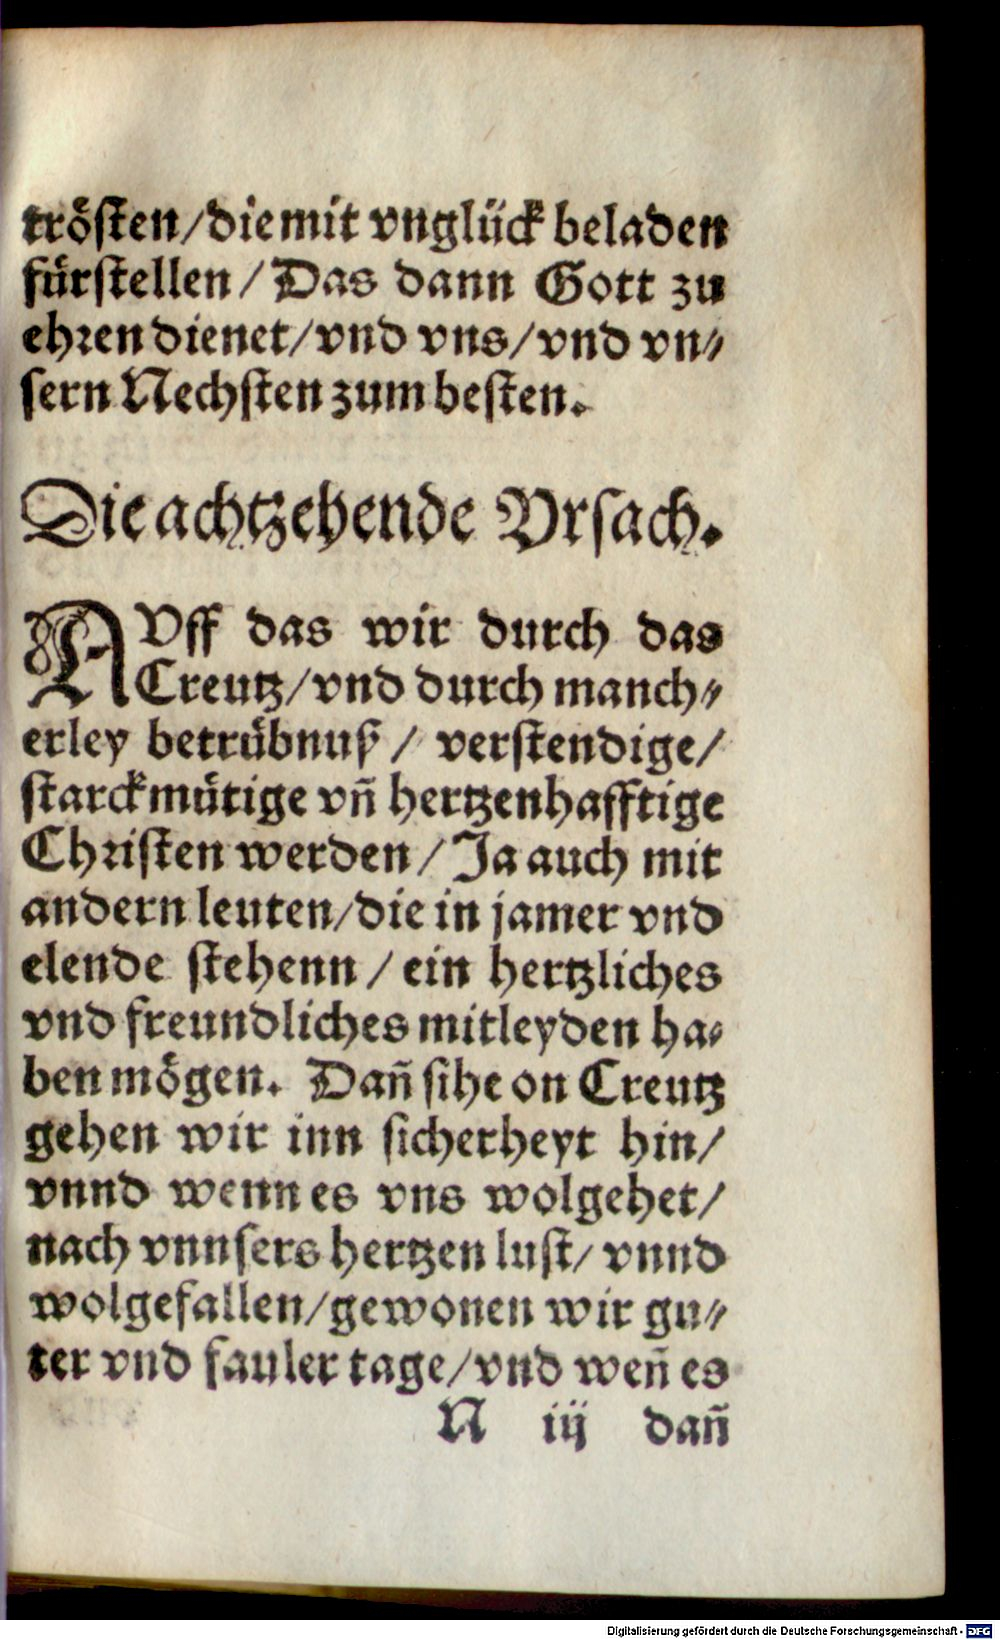 trösten/die mit vnglück beladen
fürstellen/Das dann Gott zu
ehren dienet/vnd vns/vnd vn⸗
sern Nechsten zum besten.
Die achtzehende Vrsach.
AVff das wir durch das
Creutz/vnd durch manch⸗
erley betrübnuß/ verstendige/
starckmütige vñ hertzenhafftige
Christen werden/Ja auch mit
andern leuten/die in jamer vnd
elende stehenn/ein hertzliches
vnd freundliches mitleyden ha⸗
ben mögen. Dañ sihe on Creutz
gehen wir inn sicherheyt hin/
vnnd wenn es vns wolgehet/
nach vnnsers hertzen lust/vnnd
wolgefallen/gewonen wir gu⸗
ter vnd fauler tage/vnd weñ es
N iij dañ
Digitalisierung gefördert durch die Deutsche Forschungsgemeinschaft - DFG